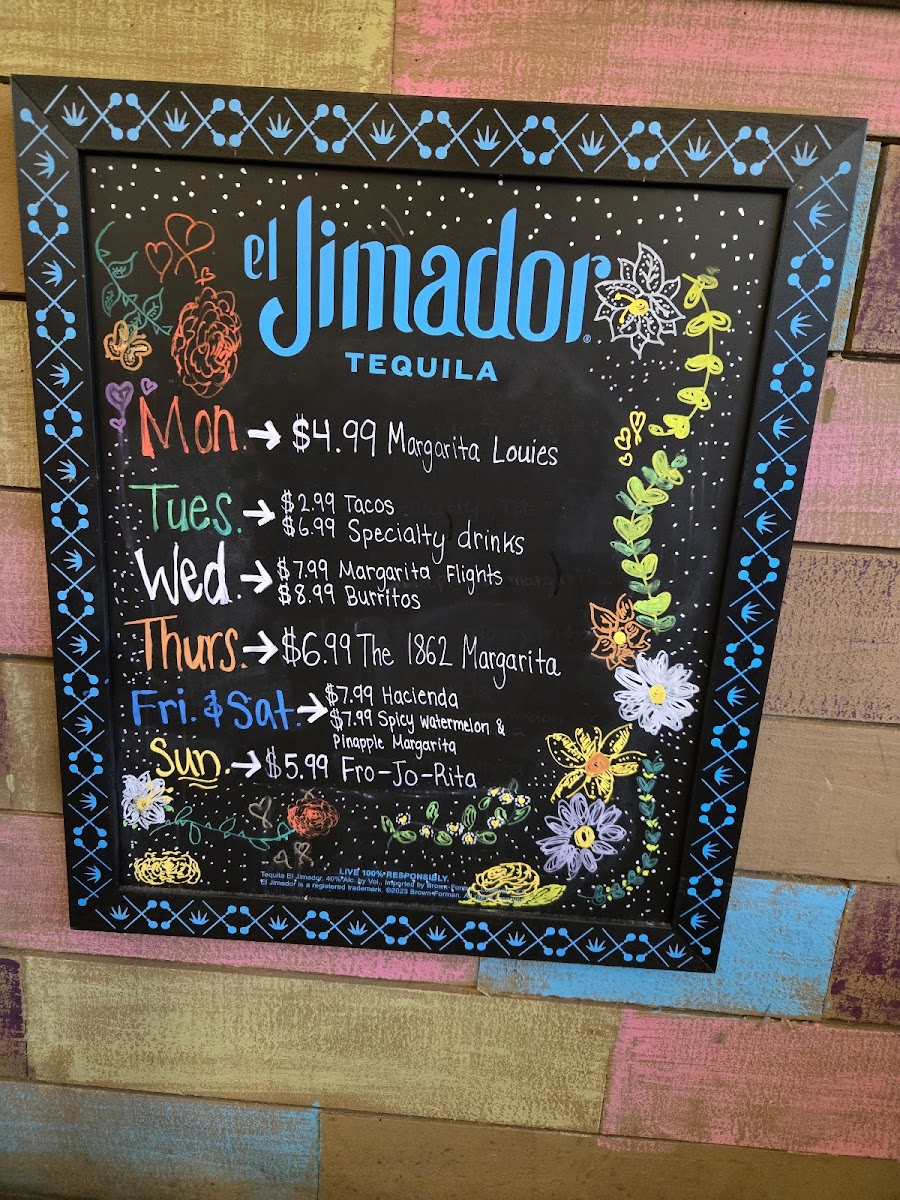 el Jimador®
TEQUILA
Mon. → $4.99 Margarita Louies
Tues. → $2.99 Tacos
$6.99 Specialty drinks
Wed. → $7.99 Margarita Flights
$8.99 Burritos
Thurs. → $6.99 The 1862 Margarita
Fri. & Sat. → $7.99 Hacienda
$7.99 Spicy Watermelon &
Pinapple Margarita
Sun. → $5.99 Fro-Jo-Rita
LIVE 100% RESPONSIBLY.
Tequila El Jimador, 40% Alc. by Vol., Imported by Brown-Forman
El Jimador is a registered trademark. ©2023 Brown-Forman. All